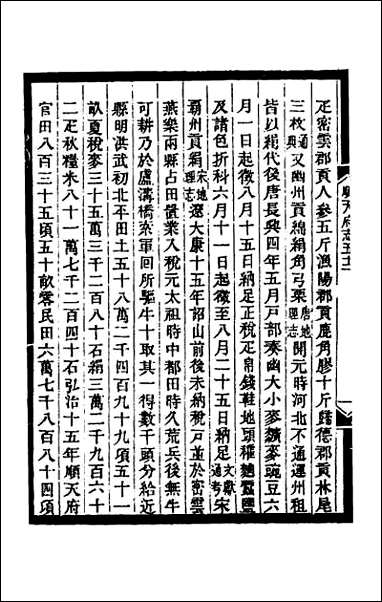 順天府志五十二
疋密雲郡貢人參五斤漁陽郡貢鹿角膠十斤歸德郡貢林尾
三枚通典又幽州貢綿絹角弓栗唐地理志開元時河北不通運州租
皆以絹代後唐長興四年五月戶部奏幽大小麥穬麥豌豆六
月一日起徵八月十五日納足正稅疋帛錢鞋地頭權麴蠶鹽
及諸色折科六月十一日起徵至八月二十五日納足文獻通考宋
霸州貢絹宋地理志遼大康十五年詔山前後未納稅戶並於密雲
燕樂兩縣占田置業入稅元太祖時中都田時久荒兵後無牛
可耕乃於盧溝橋索軍回所驅牛十取其一得數千頭分給近
縣明洪武初北平田土五十八萬二千四百九十九項五十一
畝夏稅麥三十五萬三千二百八十石絹三萬二千九百六十
二疋秋糧米八十一萬七千二百四十石弘治十五年順天府
官田八百三十五頃五十畝零民田六萬七千八百八十四項